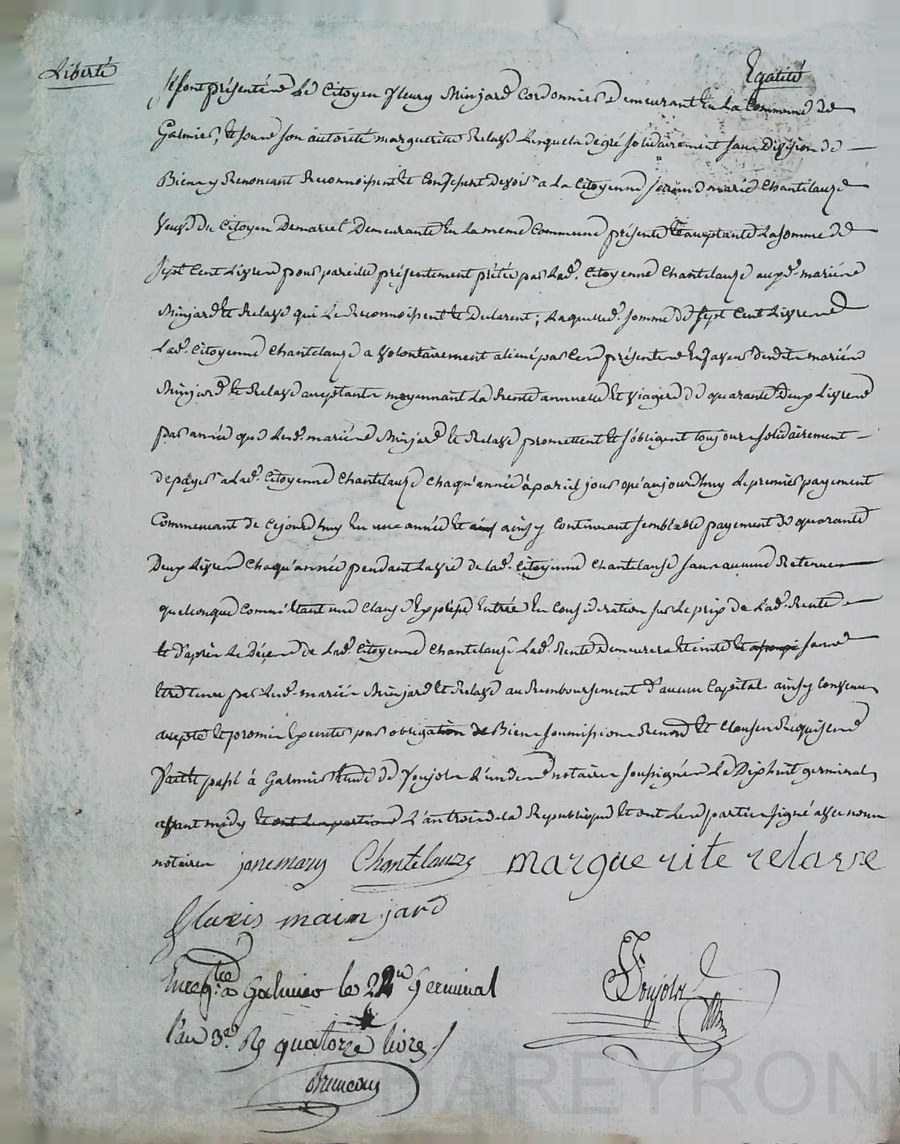 Liberté
Egalité
Se sont présenténs Le Citoyen fleury Minjard Cordonnier Demeurant En La Commune de
Galmier, Et sous son autorité marguerite Relave Lesquels de gré solidairement sans Division de
Biens y Renoncant Reconnoissent Et Confessent devoir a La Citoyenne jeanne marie Chantelauze
Veuve du Citoyen Demarcel Demeurante En La meme Commune présente Et acceptante La somme de
Sept Cent Livres pour pareille présentement prêtée par Lad. Citoyenne Chantelauze aux d. mariéns
Minjard Et Relave qui Le Reconnoissent Et Declarent; Laquelle d. somme de sept Cent Livres
Lad. Citoyenne Chantelauze a volontairement aliené par Cens présentens En faveur desdits mariéns
Minjard Et Relave acceptants moyennant La Rente annuelle Et viagere de quarante Deux Livres
par année que Lesd. mariéns Minjard Et Relave promettent Et s'obligent toujours solidairement
de payer a Lad. Citoyenne Chantelauze Chaqu'année à pareil jour qu'aujourdhuy Le premier payement
Commencant de Cejourdhuy En une année Et ainsy Continuant semblable payement de quarante
Deux Livres Chaqu'année pendant La vie de Lad. Citoyenne Chantelauze sans aucune Retenue
quelconque Comme Etant une Clause Expresse Entrée En Consideration sur Le prix de Lad. Rente
Et d'après Le Décens de Lad. Citoyenne Chantelauze Lad. Rente Demeurera Eteinte sans
Etre tenus par Lesd. mariéns Minjard Et Relave au Remboursement d'aucun Capital ainsy Convenu
accepté Et promis Executer par obligation de Biens soumissions Renond Et Clauses Requisens
fait Et passé à Galmier Etude de Poujol L'un Des notaires soussignés Le Dixhuit germinal
avant midy L'an trois de la Republique Et ont Lesd parties signé avec nous
notaires janemary Chantelauze marguerite relave
flaris mainjard
Enreg.tré à Galmier le 22 Germinal
l'an 3.e Rç quatorze livres
Poujol
Bruncon
HAREYRON